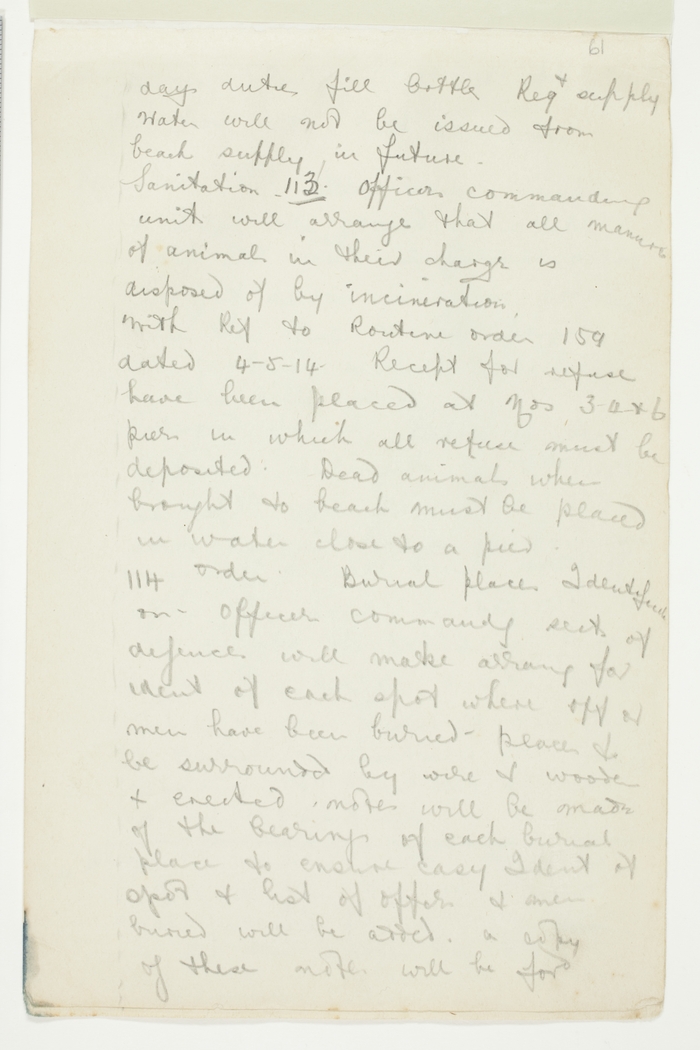 61
days duties fill bottle Reqt supply
Water will not be issued from
beach supply in future.
Sanitation 113. Officers commanding
unit will arrange that all manure
of animals in their charge is
disposed of by incineration.
With Ref to Routine order 159
dated 4-5-14. Recept for refuse
have been placed at Nos 3-4 & 6
piers in which all refuse must be
deposited. Dead animals when
brought to beach must be placed
in water close to a pier.
114 order. Burial places Identificati
on - Officers commandg sects of
defences will make arrang for
ident of each spot where off or
men have been buried - places to
be surrounded by wire & wooden
+ erected. notes will be made
of the bearings of each burial
place to ensure easy Ident of
spot & list of officers & men
buried will be added. a copy
of these notes will be ford